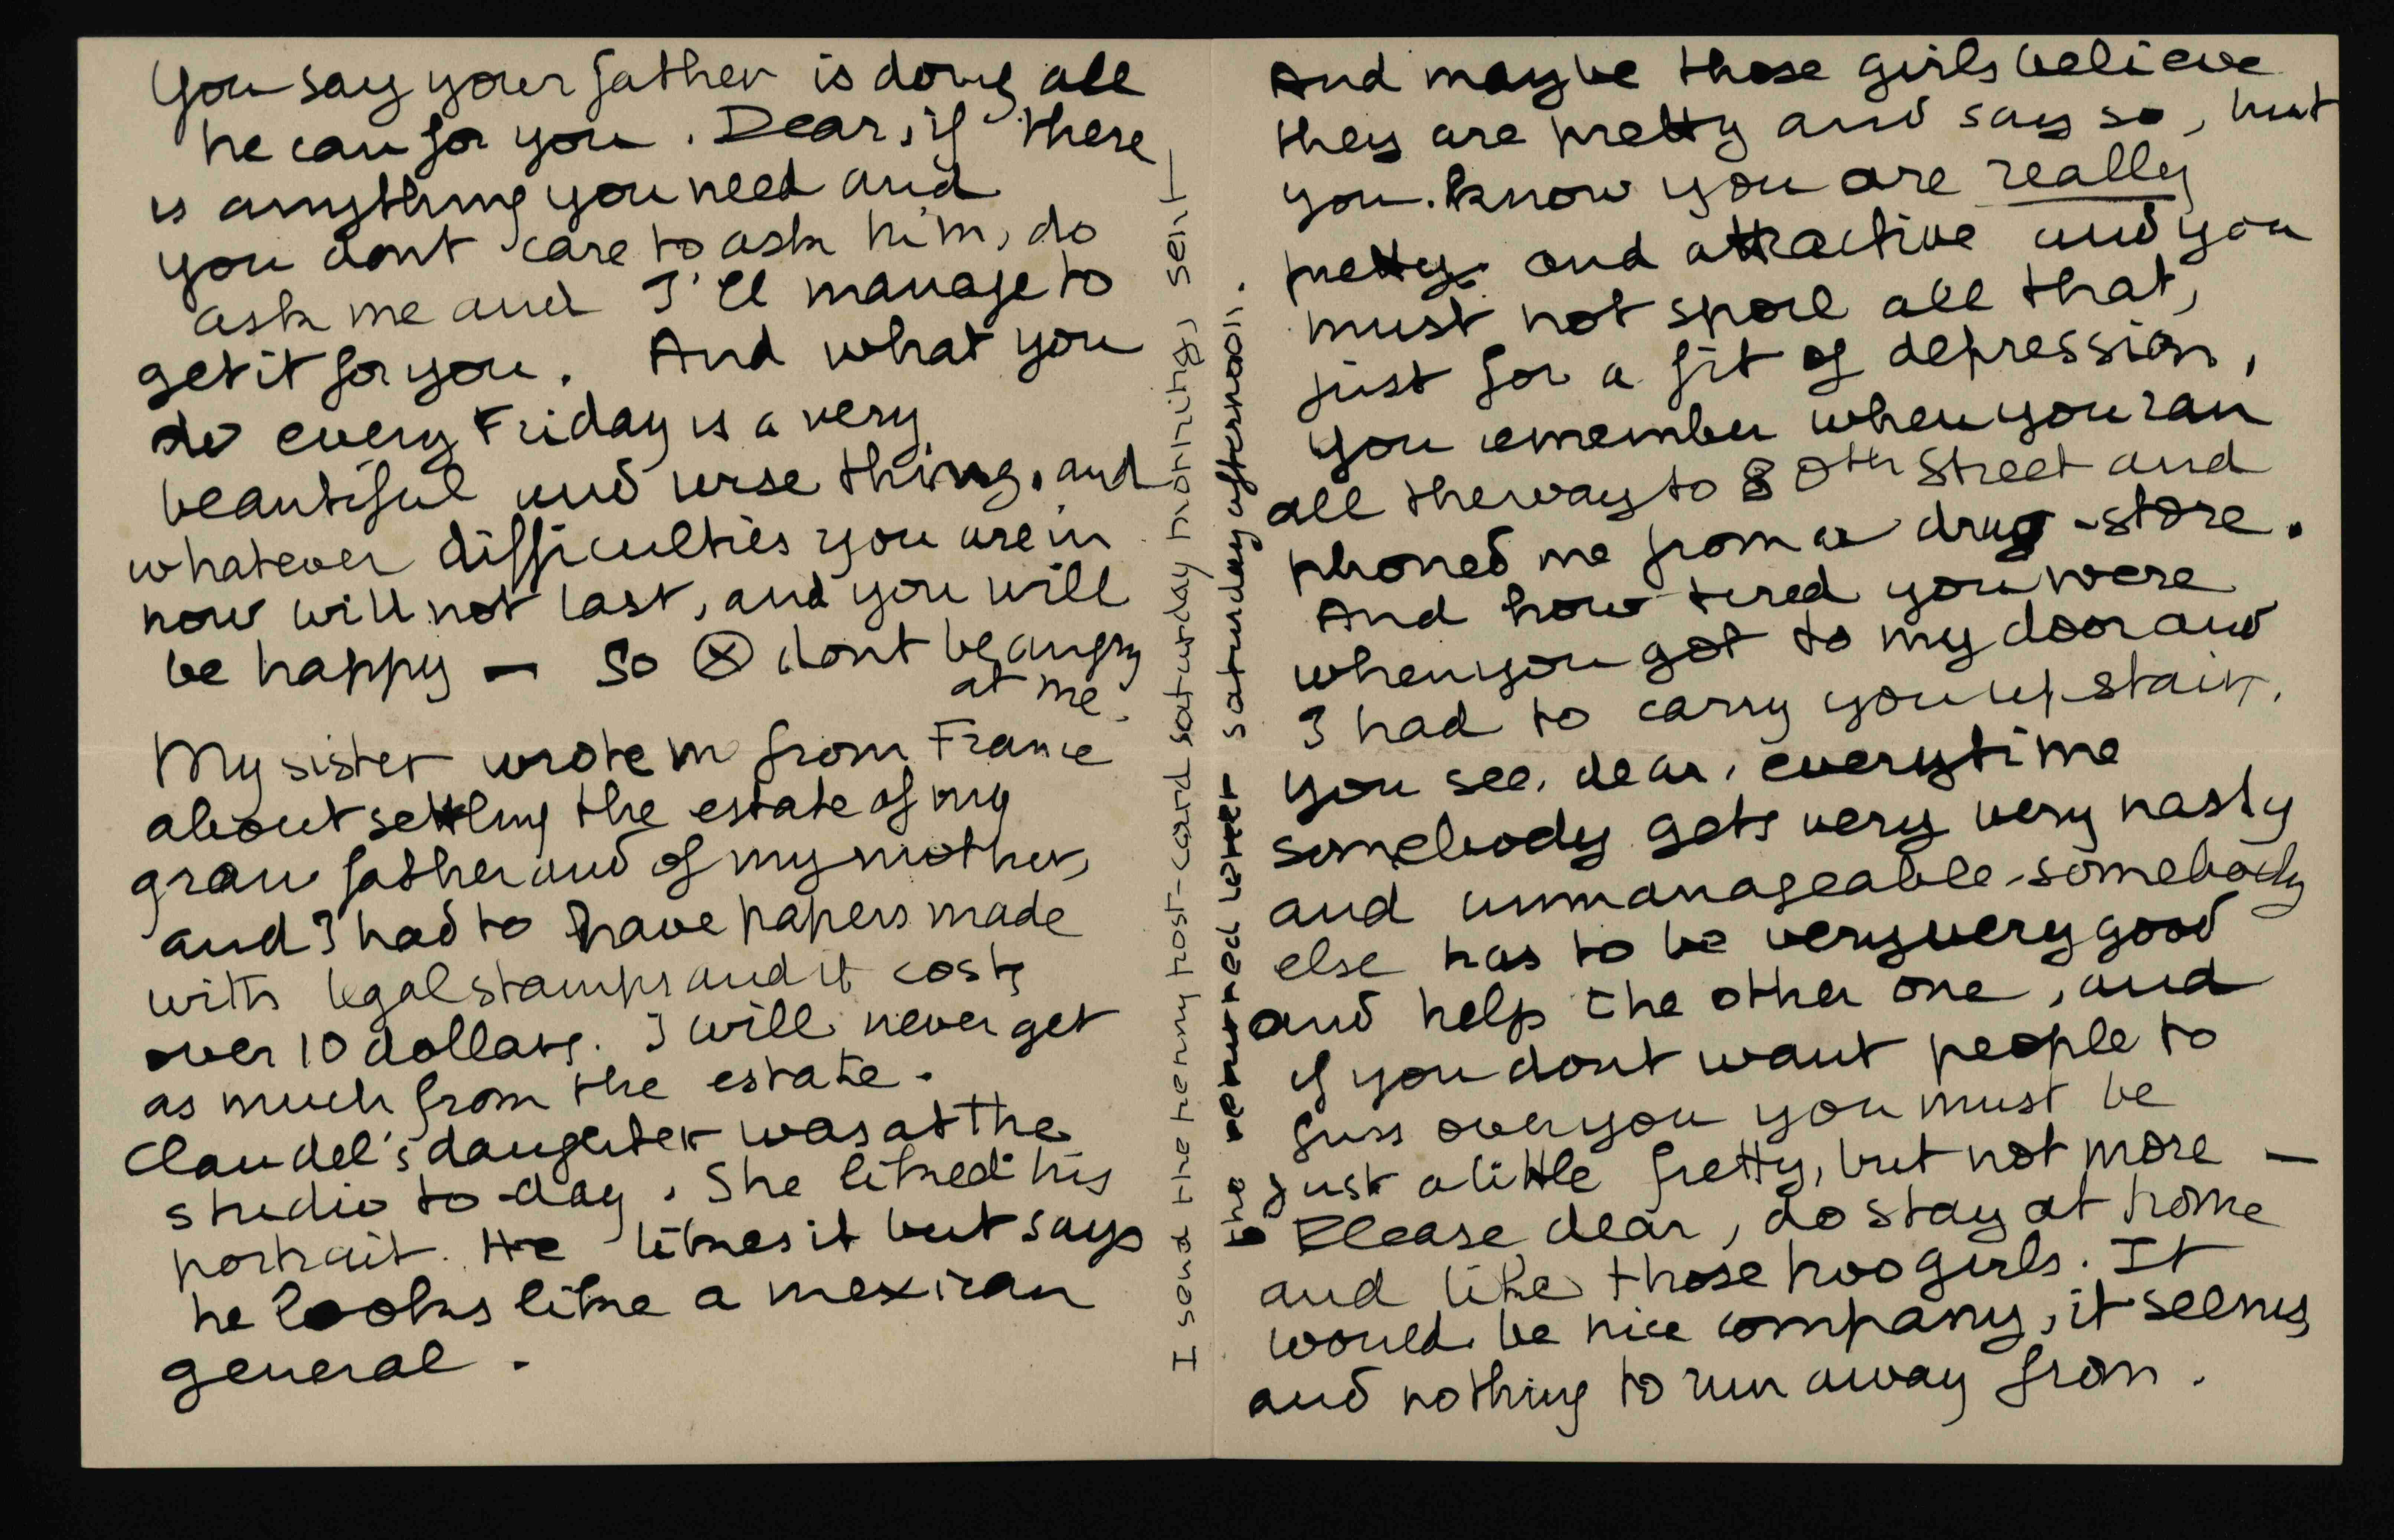 You say your father is doing all
he can for you. Dear, if there
is anything you need and
you dont care to ask him, do
ask me and I'll manage to
get it for you. And what you
do every Friday is a very
beautiful and wise thing, and
whatever difficulties you are in
now will not last, and you will
be happy — So ⊗ dont be angry
at me.
My sister wrote m from France
about settling the estate of my
gran father and of my mother,
and I had to have papers made
with legal stamps and it costs
over 10 dollars. I will never get
as much from the estate.
Claudel's daughter was at the
studio to-day. She liked his
portrait. He likes it but says
he looks like a mexican
general.
I send the penny post-card saturday morning, sent
the returned letter saturday afternoon.
And maybe those girls believe
they are pretty and say so, but
you know you are really
pretty and attractive and you
must not spoil all that,
just for a fit of depression,
you remember when you ran
all the way to 80th Street and
phoned me from a drug-store.
And how tired you were
when you got to my door and
I had to carry you up stairs.
You see, dear, everytime
somebody gets very very nasty
and unmanageable somebody
else has to be very very good
and help the other one, and
if you dont want people to
fuss over you you must be
just a little pretty, but not more —
Please dear, do stay at home
and like those two girls. It
would be nice company, it seems,
and nothing to run away from.